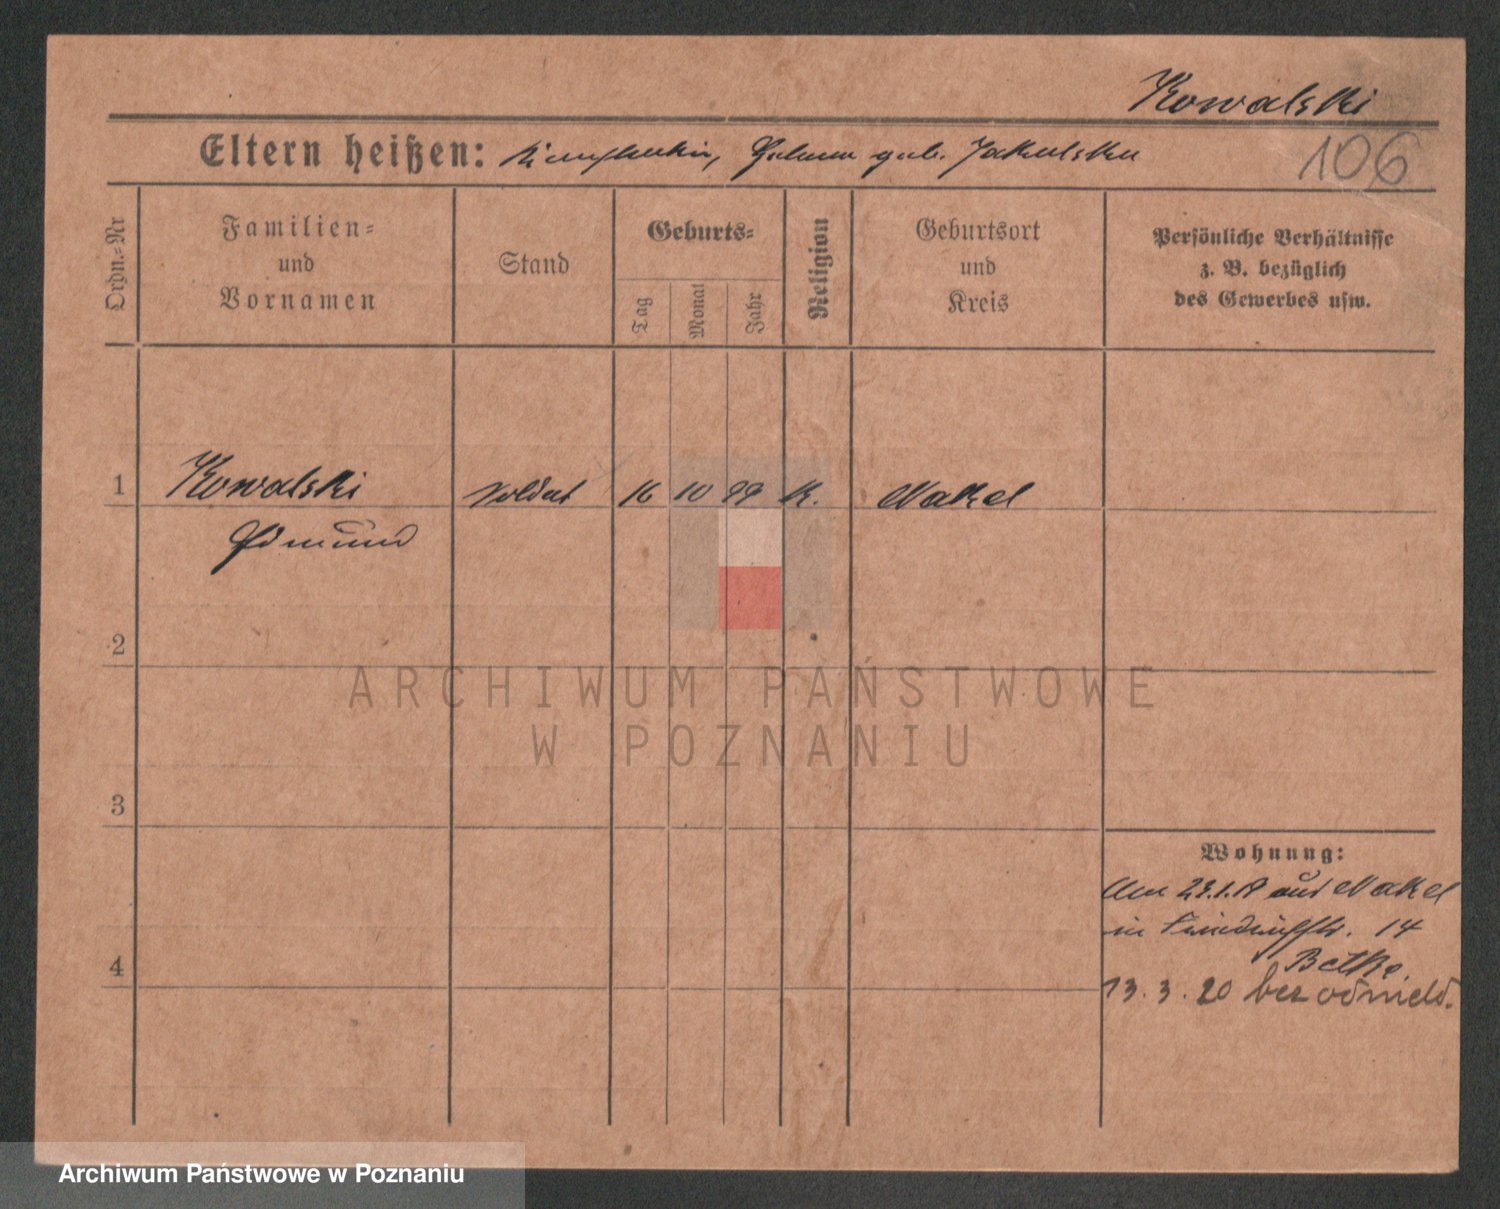 Kowalski
Eltern heißen: geb.
106
Ordn.-Nr
Familien-
und
Vornamen
Stand
Geburts-
Tag
Monat
Jahr
Religion
Geburtsort
und
Kreis
Persönliche Verhältnisse
z. B. bezüglich
des Gewerbes usw.
1 Kowalski Soldat 16 10 99 K. Nakel
Edmund
2
ARCHIWUM PAŃSTWOWE
W POZNANIU
3
4
Wohnung:
aus Nakel
in 14
Betke
13. 3. 20 bez odmeld.
Archiwum Państwowe w Poznaniu